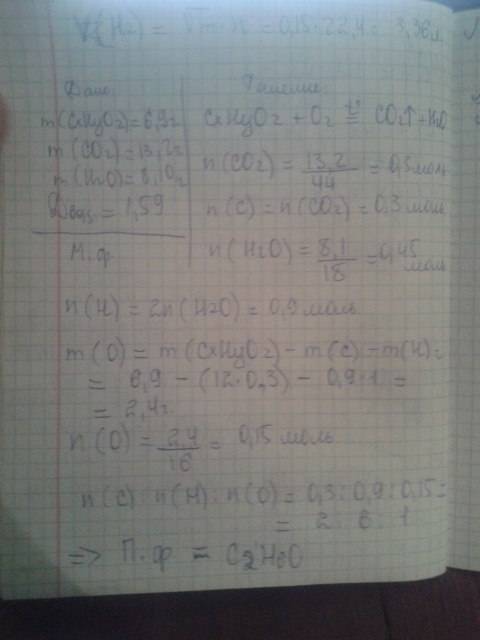 V(H2) = Vm · n = 0,15·22,4 = 3,36л
Дано
Решение
m(CxHyOz)=6,9г
m(CO2)=13,2г
m(H2O)=8,10г
Dвоз = 1,59
М.ф
CxHyOz + O2 t° = CO2↑ + H2O
n(CO2) = 13,2/44 = 0,3 моль
n(C) = n(CO2) = 0,3 моль
n(H2O) = 8,1/18 = 0,45 моль
n(H) = 2n(H2O) = 0,9 моль
m(O) = m(CxHyOz) - m(C) - m(H) =
= 6,9 - (12·0,3) - 0,9·1 =
= 2,4г
n(O) = 2,4/16 = 0,15 моль
n(C) : n(H) : n(O) = 0,3 : 0,9 : 0,15 =
= 2 : 6 : 1
=> П.ф = C2H6O